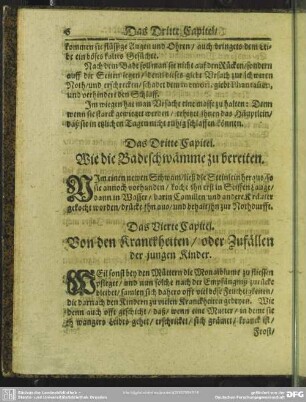 6 Das Dritte Capitel.
kommen sie flüssige Augen und Ohren / auch bringets dem Lei-
be ein böses kaltes Gesüchte.
Nach dem Bade soll man sie nicht auf den Rücken / sondern
auff die Seiten legen / denn dieses giebt Ursach zur schweren
Noth / und erschrecken / schadet dem memori, giebt
und verhindert den Schlaff.
Im wiegen hat man Ursache eine masse zu halten: Denn
wenn sie starck gewieget werden / ihnen das
daß sie in etlichen Tagen nicht ruhig schlaffen können.
Das Dritte Capitel.
Wie die Badeschwämme zu bereiten.
NIm einen newen Schwam / ließ die Steinlein heraus / so
sie annoch vorhanden / koche ihn erst in Seiffen
dann in Wasser / darin Camillen und andere Kräuter
gekocht worden / drücke ihn aus / und behalt ihn zur Nothdurfft.
Das Vierte Capitel.
Von den Kranckheiten / oder Zufällen
der jungen Kinder.
WEil sonst bey den Müttern die Monatblume zu fliessen
pfleget / und nun solche nach der Empfängniß zurücke
bleibet / samlen sich dahero offt viel böse Feuchtigkeiten /
die darnach den Kindern zu vielen Kranckheiten gedeyen. Wie
denn auch offt geschicht / daß / wenn eine Mutter / in dem sie
schwanges Leibes gehet / erschricket / sich grämet / kranck ist /
Frost /